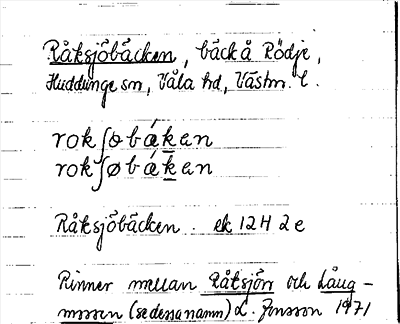 Råksjöbäcken, bäck å Rödje,
Huddunge sn, Våla hd, Västm. l.
rokʃøbǽkan
rokʃøbækan
Råksjöbäcken. ek 12 H 2 e
Rinner mellan Råksjön och Lång-
mossen (se dessa namn) L. Jonsson 1971